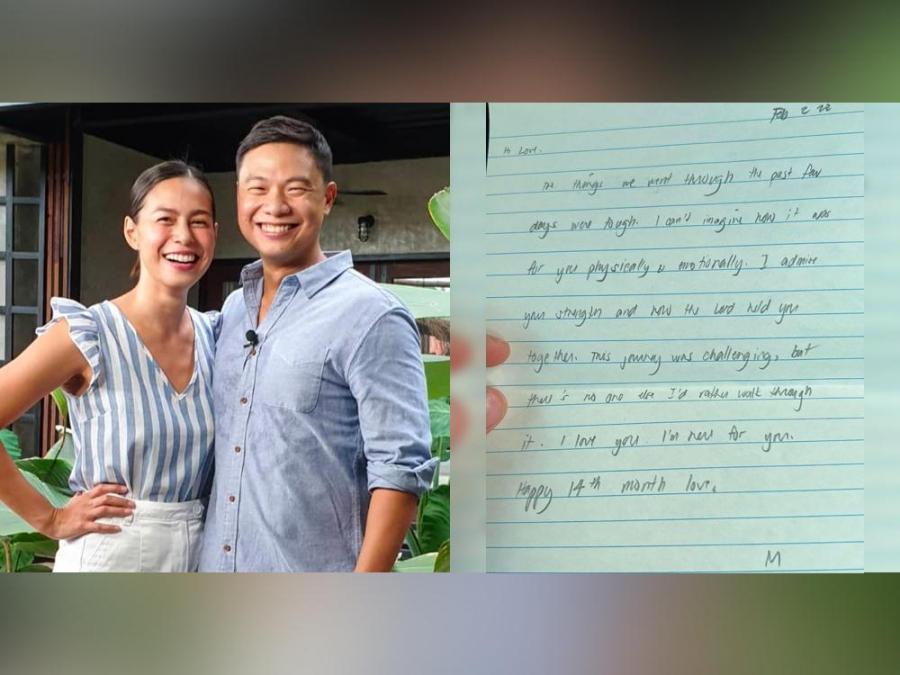 Feb 2 22
Hi Love.
The things we went through the past few
days were tough. I can't imagine how it was
for you physically & emotionally. I admire
your strength and how the Lord held you
together. This journey was challenging, but
there's no one else I'd rather walk through
it. I love you. I'm here for you.
Happy 14th month love.
M